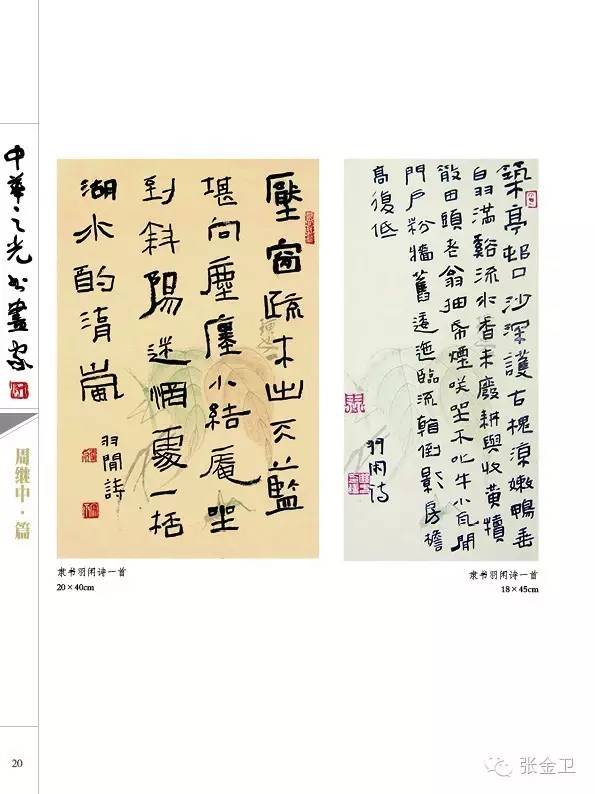 中華之光书畫家
周继中·篇
壓窗疏木出天藍
堪向塵廛小結庵坐
對斜陽迷惘處一桮
湖水酌清嵐
羽閒詩
隶书羽闲诗一首
20×40cm
築亭邨口沙深護古槐涼嫩鴨垂
白羽滿谿流水香未廢耕與收黃犢
散田頭老翁抽帋煙咲坐不叱牛小瓦閒
門戶粉牆舊逶迤臨流翻倒影房檐
高復低
羽闲诗
隶书羽闲诗一首
18×45cm
20
张金卫